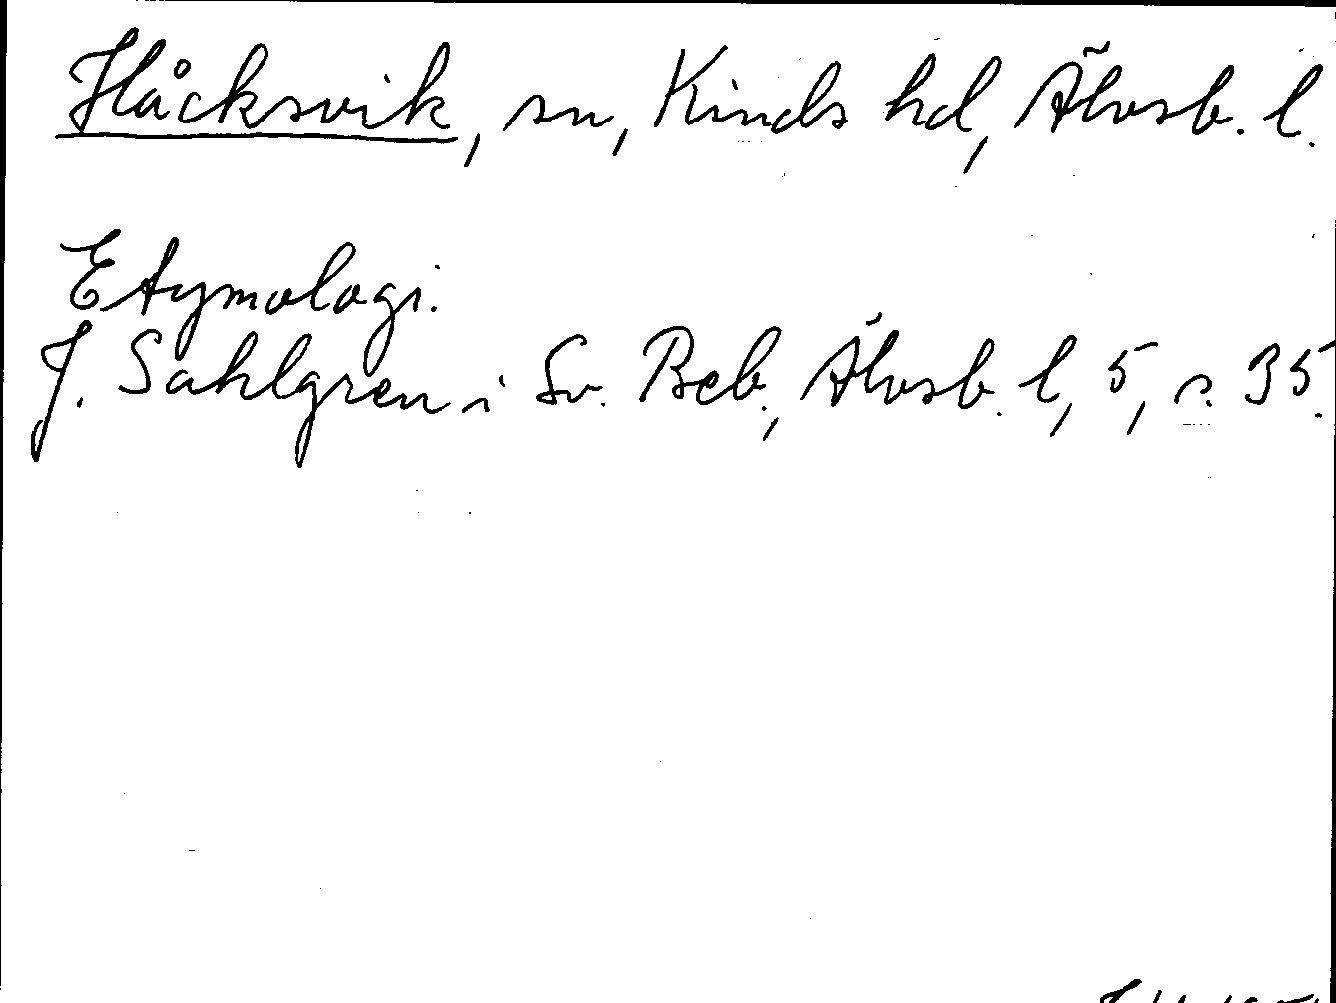 Håcksvik, sn, Kinds hd, Älvsb. l.
Etymologi.
J. Sahlgren i Sv. Beb., Älvsb. l, 5, s. 35.